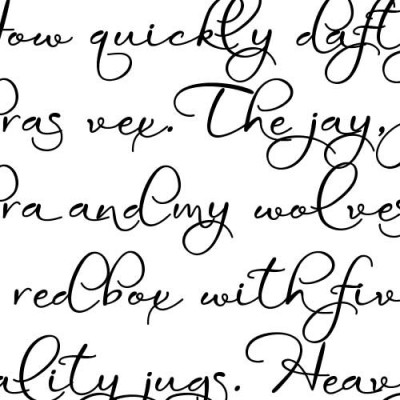 How quickly daft
bras vex. The jay,
bra and my wolves
red box with five
ality jugs. Heav